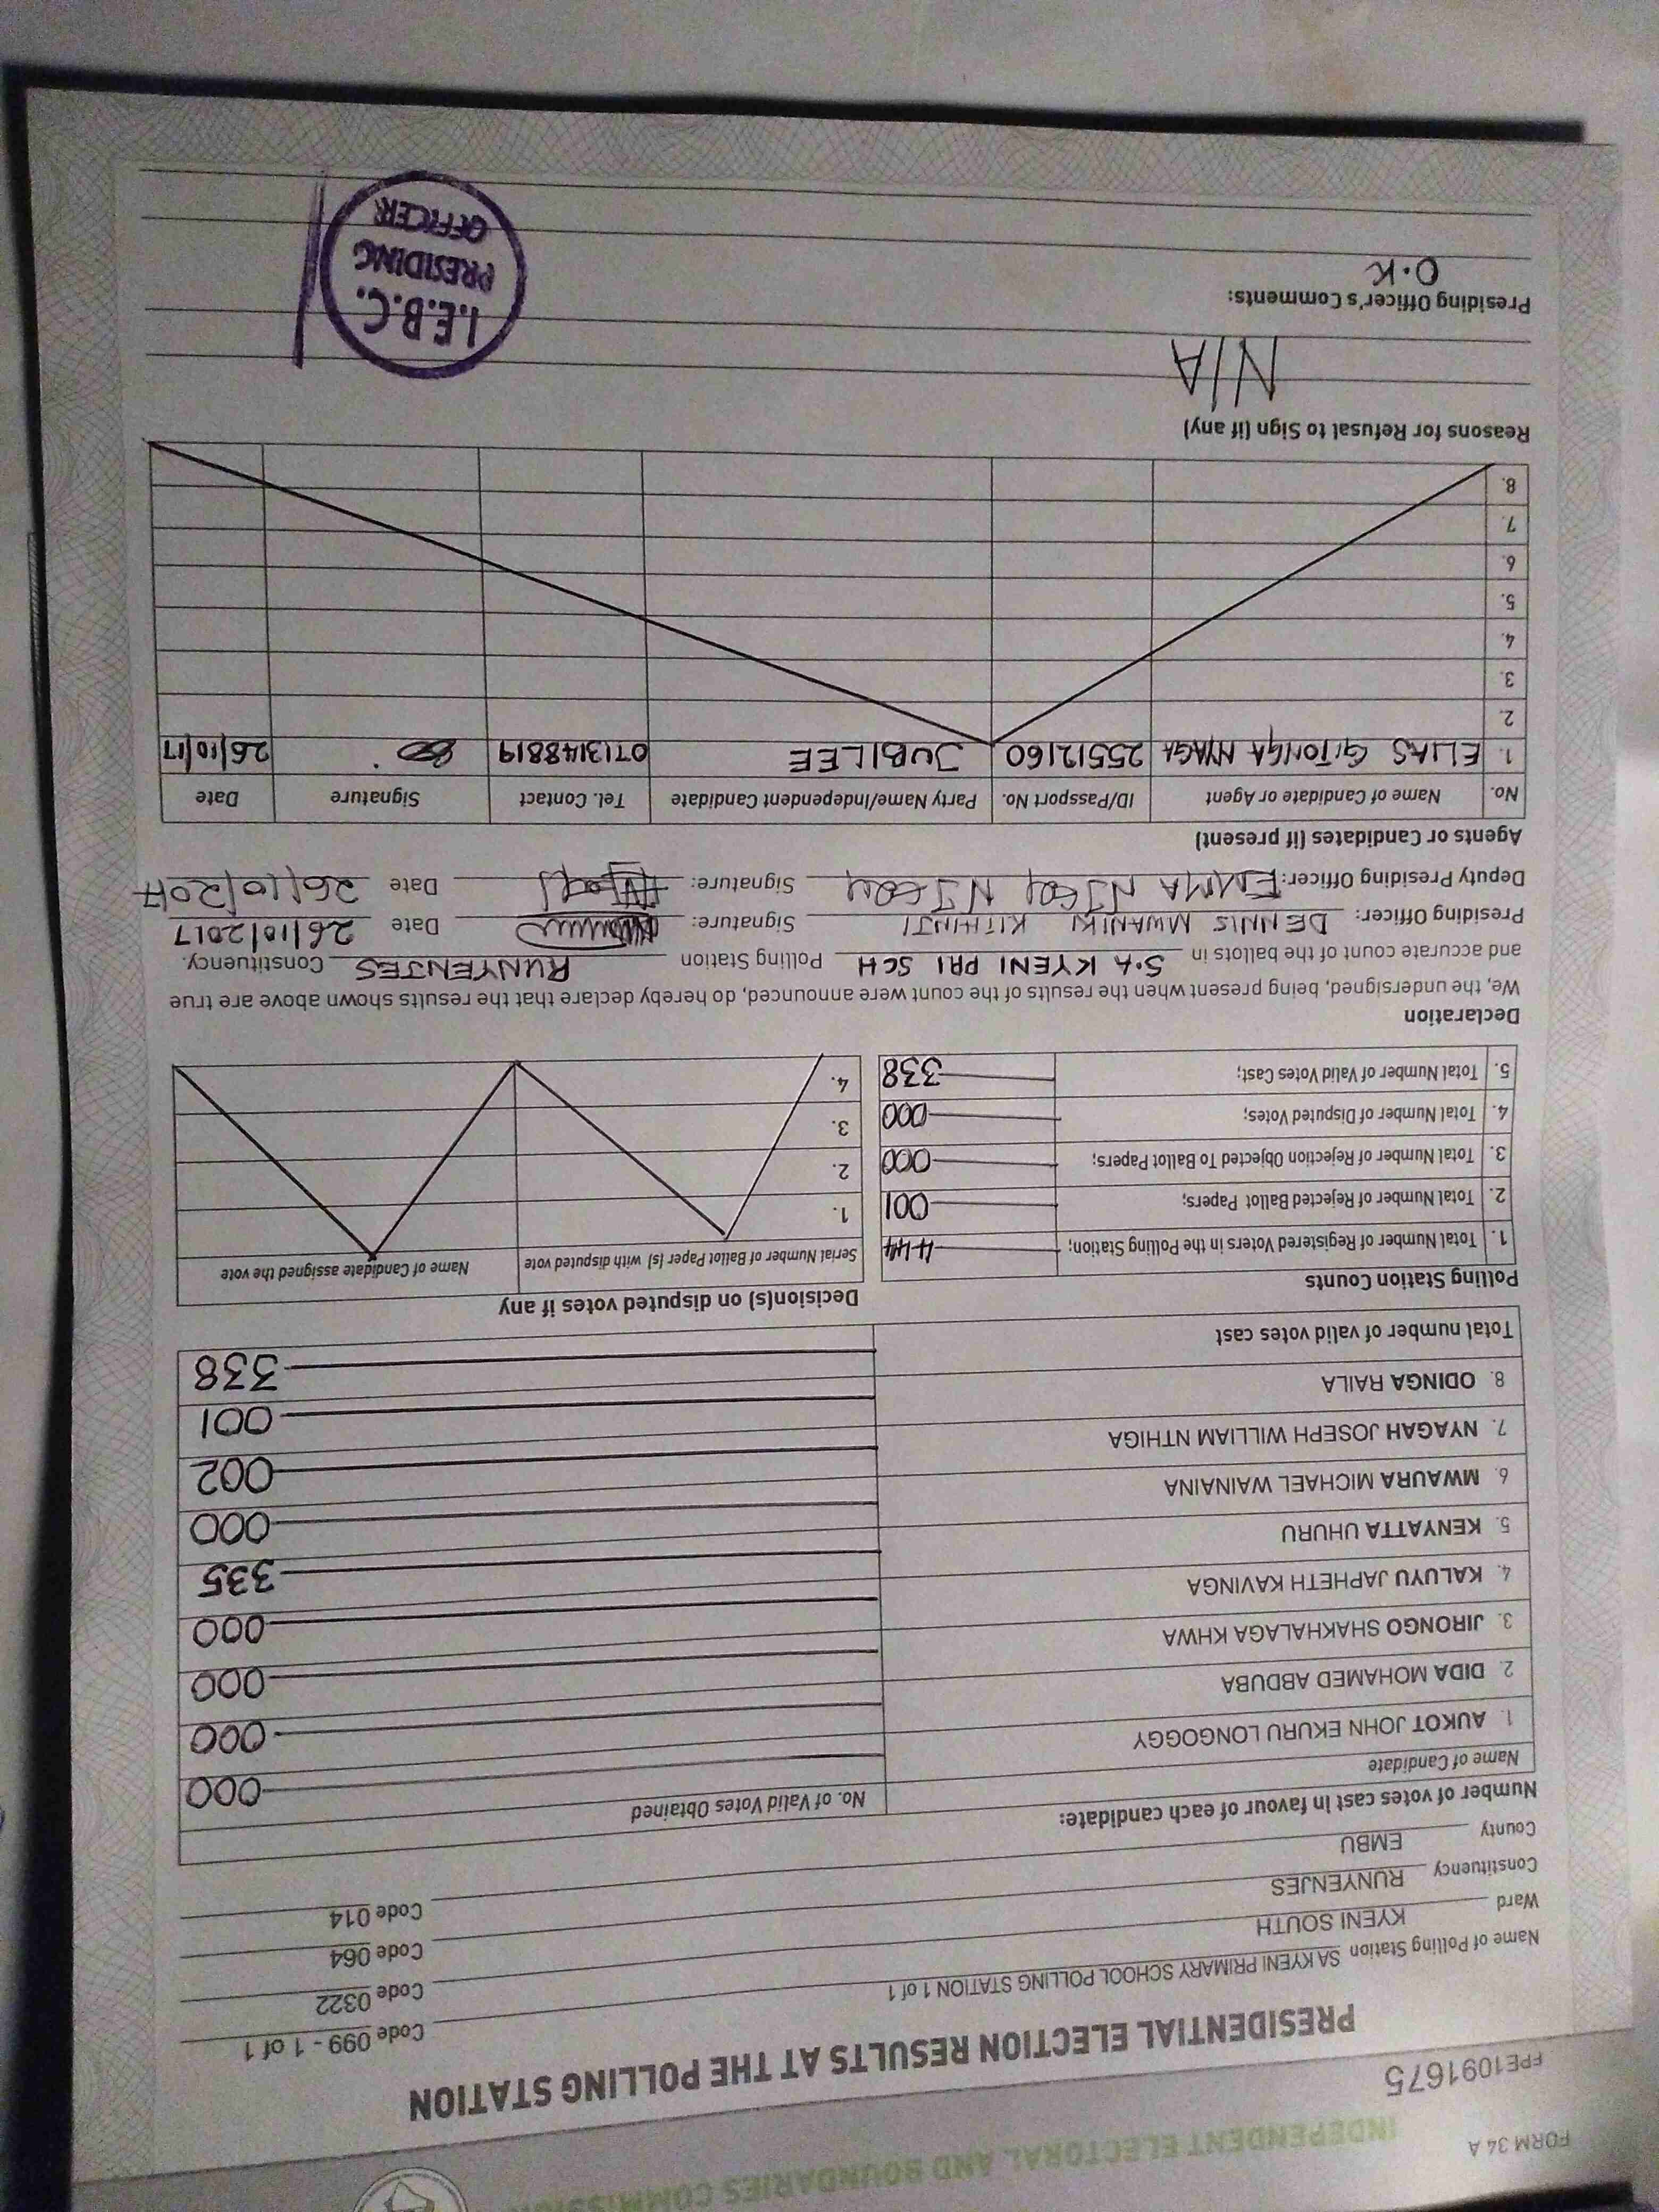 FORM 34 A
INDEPENDENT ELECTORAL AND BOUNDARIES COMMISSION
FPE1091675
PRESIDENTIAL ELECTION RESULTS AT THE POLLING STATION
Name of Polling Station SA KYENI PRIMARY SCHOOL POLLING STATION 1 of 1 Code 099 - 1 of 1
Ward KYENI SOUTH Code 0322
Constituency RUNYENJES Code 064
County EMBU Code 014
Number of votes cast in favour of each candidate:
Name of Candidate No. of Valid Votes Obtained
1. AUKOT JOHN EKURU LONGOGGY 000
2. DIDA MOHAMED ABDUBA 000
3. JIRONGO SHAKHALAGA KHWA 000
4. KALUYU JAPHETH KAVINGA 000
5. KENYATTA UHURU 335
6. MWAURA MICHAEL WAINAINA 000
7. NYAGAH JOSEPH WILLIAM NTHIGA 002
8. ODINGA RAILA 001
Total number of valid votes cast 338
Polling Station Counts
1. Total Number of Registered Voters in the Polling Station; 444
2. Total Number of Rejected Ballot Papers; 001
3. Total Number of Rejection Objected To Ballot Papers; 000
4. Total Number of Disputed Votes; 000
5. Total Number of Valid Votes Cast; 338
Decision(s) on disputed votes if any
Serial Number of Ballot Paper (s) with disputed vote Name of Candidate assigned the vote
1.
2.
3.
4.
Declaration
We, the undersigned, being present when the results of the count were announced, do hereby declare that the results shown above are true
and accurate count of the ballots in S.A KYENI PRI SCH Polling Station RUNYENJES Constituency.
Presiding Officer: DENNIS MWANIKI KITHINJI Signature: Date 26/10/2017
Deputy Presiding Officer: EMMA NJEQY NJEQY Signature: Date 26/10/2017
Agents or Candidates (if present)
No. Name of Candidate or Agent ID/Passport No. Party Name/Independent Candidate Tel. Contact Signature Date
1. ELIAS GITONGA NYAGA 25512160 JUBILEE 0713148819 26/10/17
2.
3.
4.
5.
6.
7.
8.
Reasons for Refusal to Sign (if any)
N/A
Presiding Officer's Comments:
O.K
I.E.B.C.
PRESIDING
OFFICER